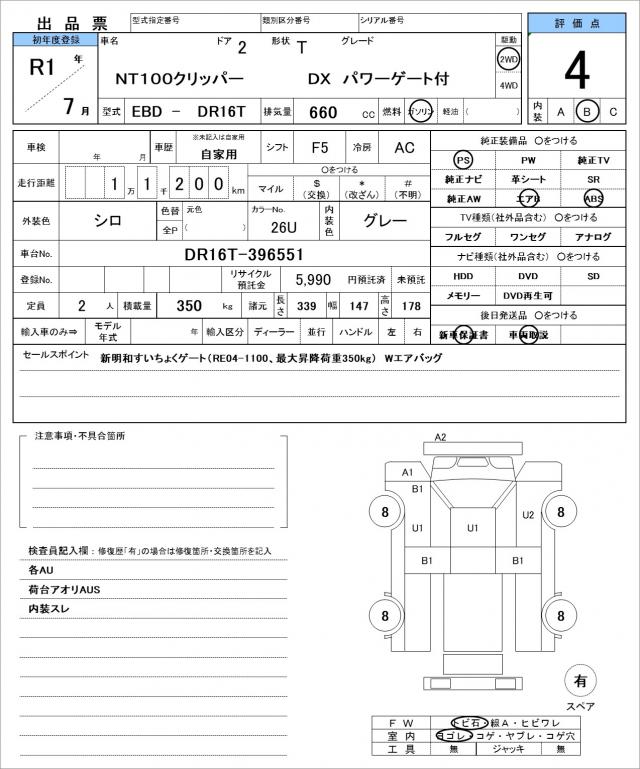 出品票 型式指定番号 類別区分番号 シリアル番号 評価点
初年度登録 車名 ドア 2 形状 T グレード 駆動
R1 年 2WD 4
NT100クリッパー DX パワーゲート付 4WD
7 月 型式 EBD － DR16T 排気量 660 cc 燃料 ガソリン 軽油 ( ) 内装 A B C
車検 年 月 車歴 ※未記入は自家用 自家用 シフト F5 冷房 AC 純正装備品 〇をつける
PS PW 純正TV
走行距離 1 万 1 千 2 0 0 km 〇をつける
マイル $ (交換) * (改ざん) # (不明) 純正ナビ 革シート SR
純正AW エアB ABS
外装色 シロ 色替 元色 カラーNo. 内装色 グレー TV種類(社外品含む) 〇をつける
全P ( ) 26U フルセグ ワンセグ アナログ
車台No. DR16T-396551 ナビ種類(社外品含む) 〇をつける
登録No. リサイクル預託金 5,990 円預託済 未預託 HDD DVD SD
定員 2 人 積載量 350 kg 諸元 長さ 339 幅 147 高さ 178 メモリー DVD再生可
後日発送品 〇をつける
輸入車のみ⇒ モデル年式 年 輸入区分 ディーラー 並行 ハンドル 左 右 新車保証書 車両取説
セールスポイント 新明和すいちょくゲート(RE04-1100、最大昇降荷重350kg) Wエアバッグ
注意事項・不具合箇所
検査員記入欄：修復歴「有」の場合は修復箇所・交換箇所を記入
各AU
荷台アオリAUS
内装スレ
A2
A1
B1
8 8
U1 U1 U2
B1 B1
8 8
有
スペア
FW トビ石・線A・ヒビワレ
室内 ヨゴレ・コゲ・ヤブレ・コゲ穴
工具 無 ジャッキ 無